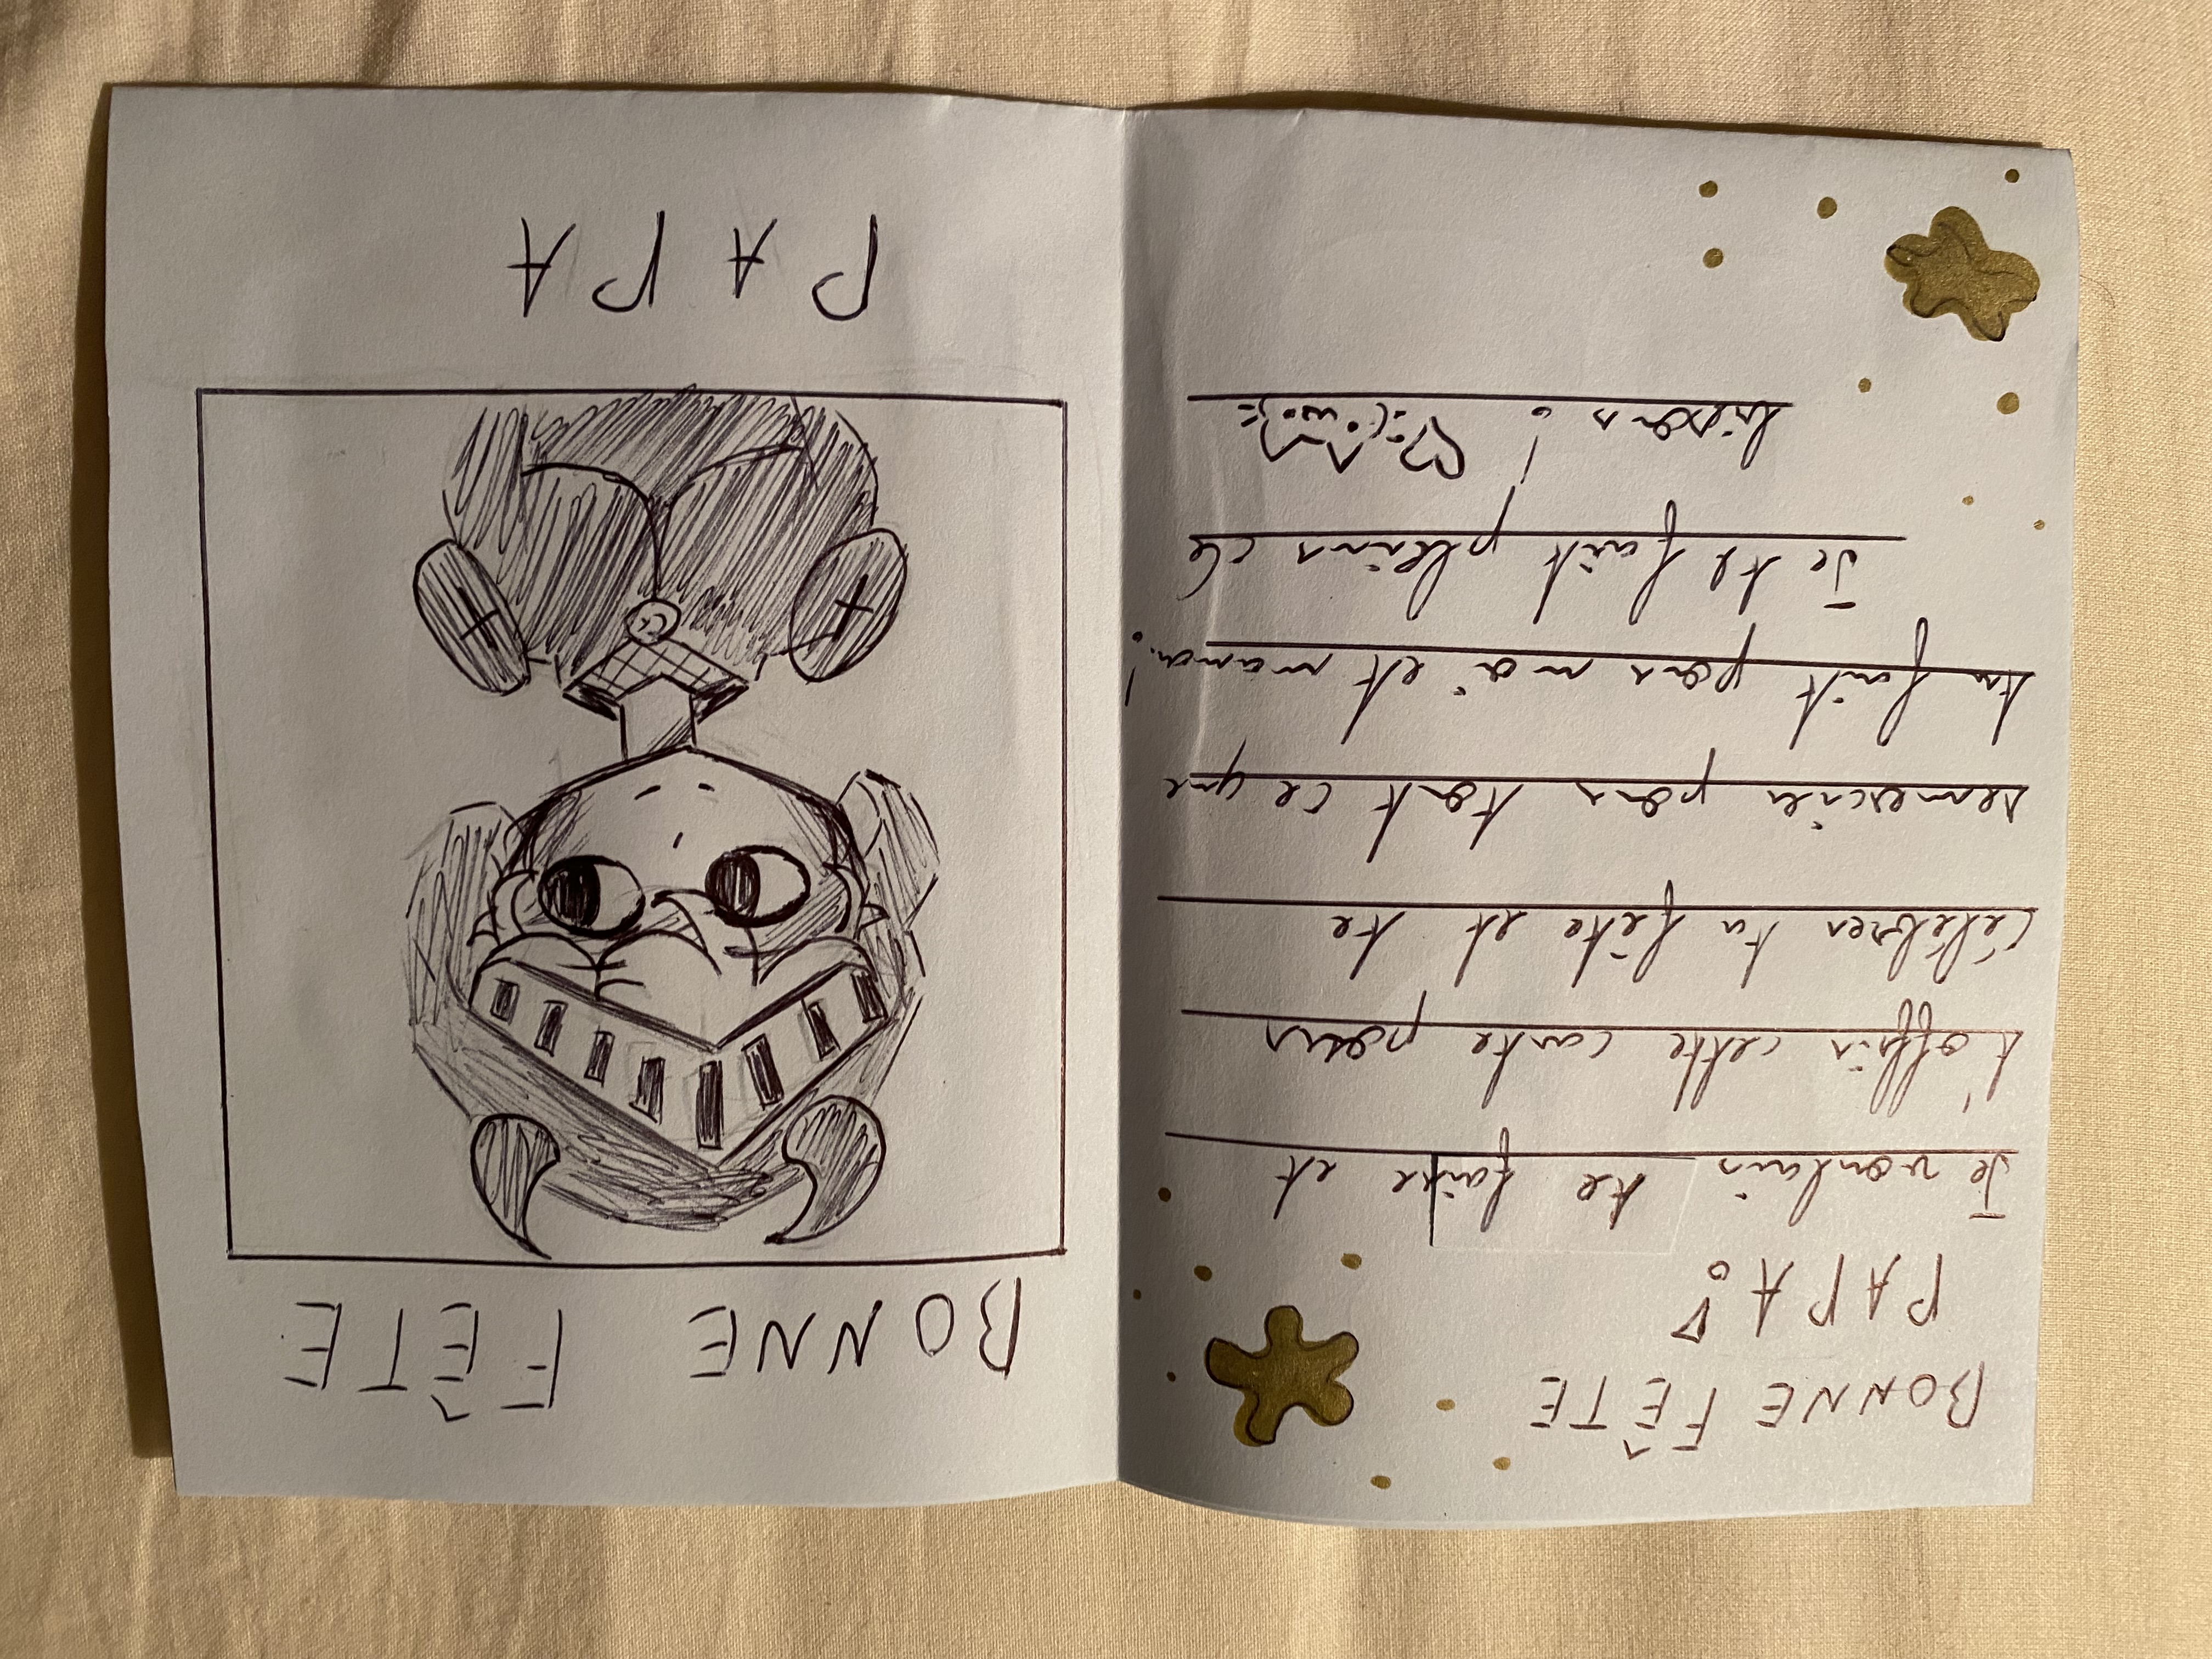 BONNE FÊTE
PAPA !
Je voulais te faire et
t'offrir cette carte pour
Célébrer ta fête et te
remercier pour tout ce que
tu fait pour moi et maman !
Je te fait pleins de
bisous !
BONNE FÊTE
PAPA